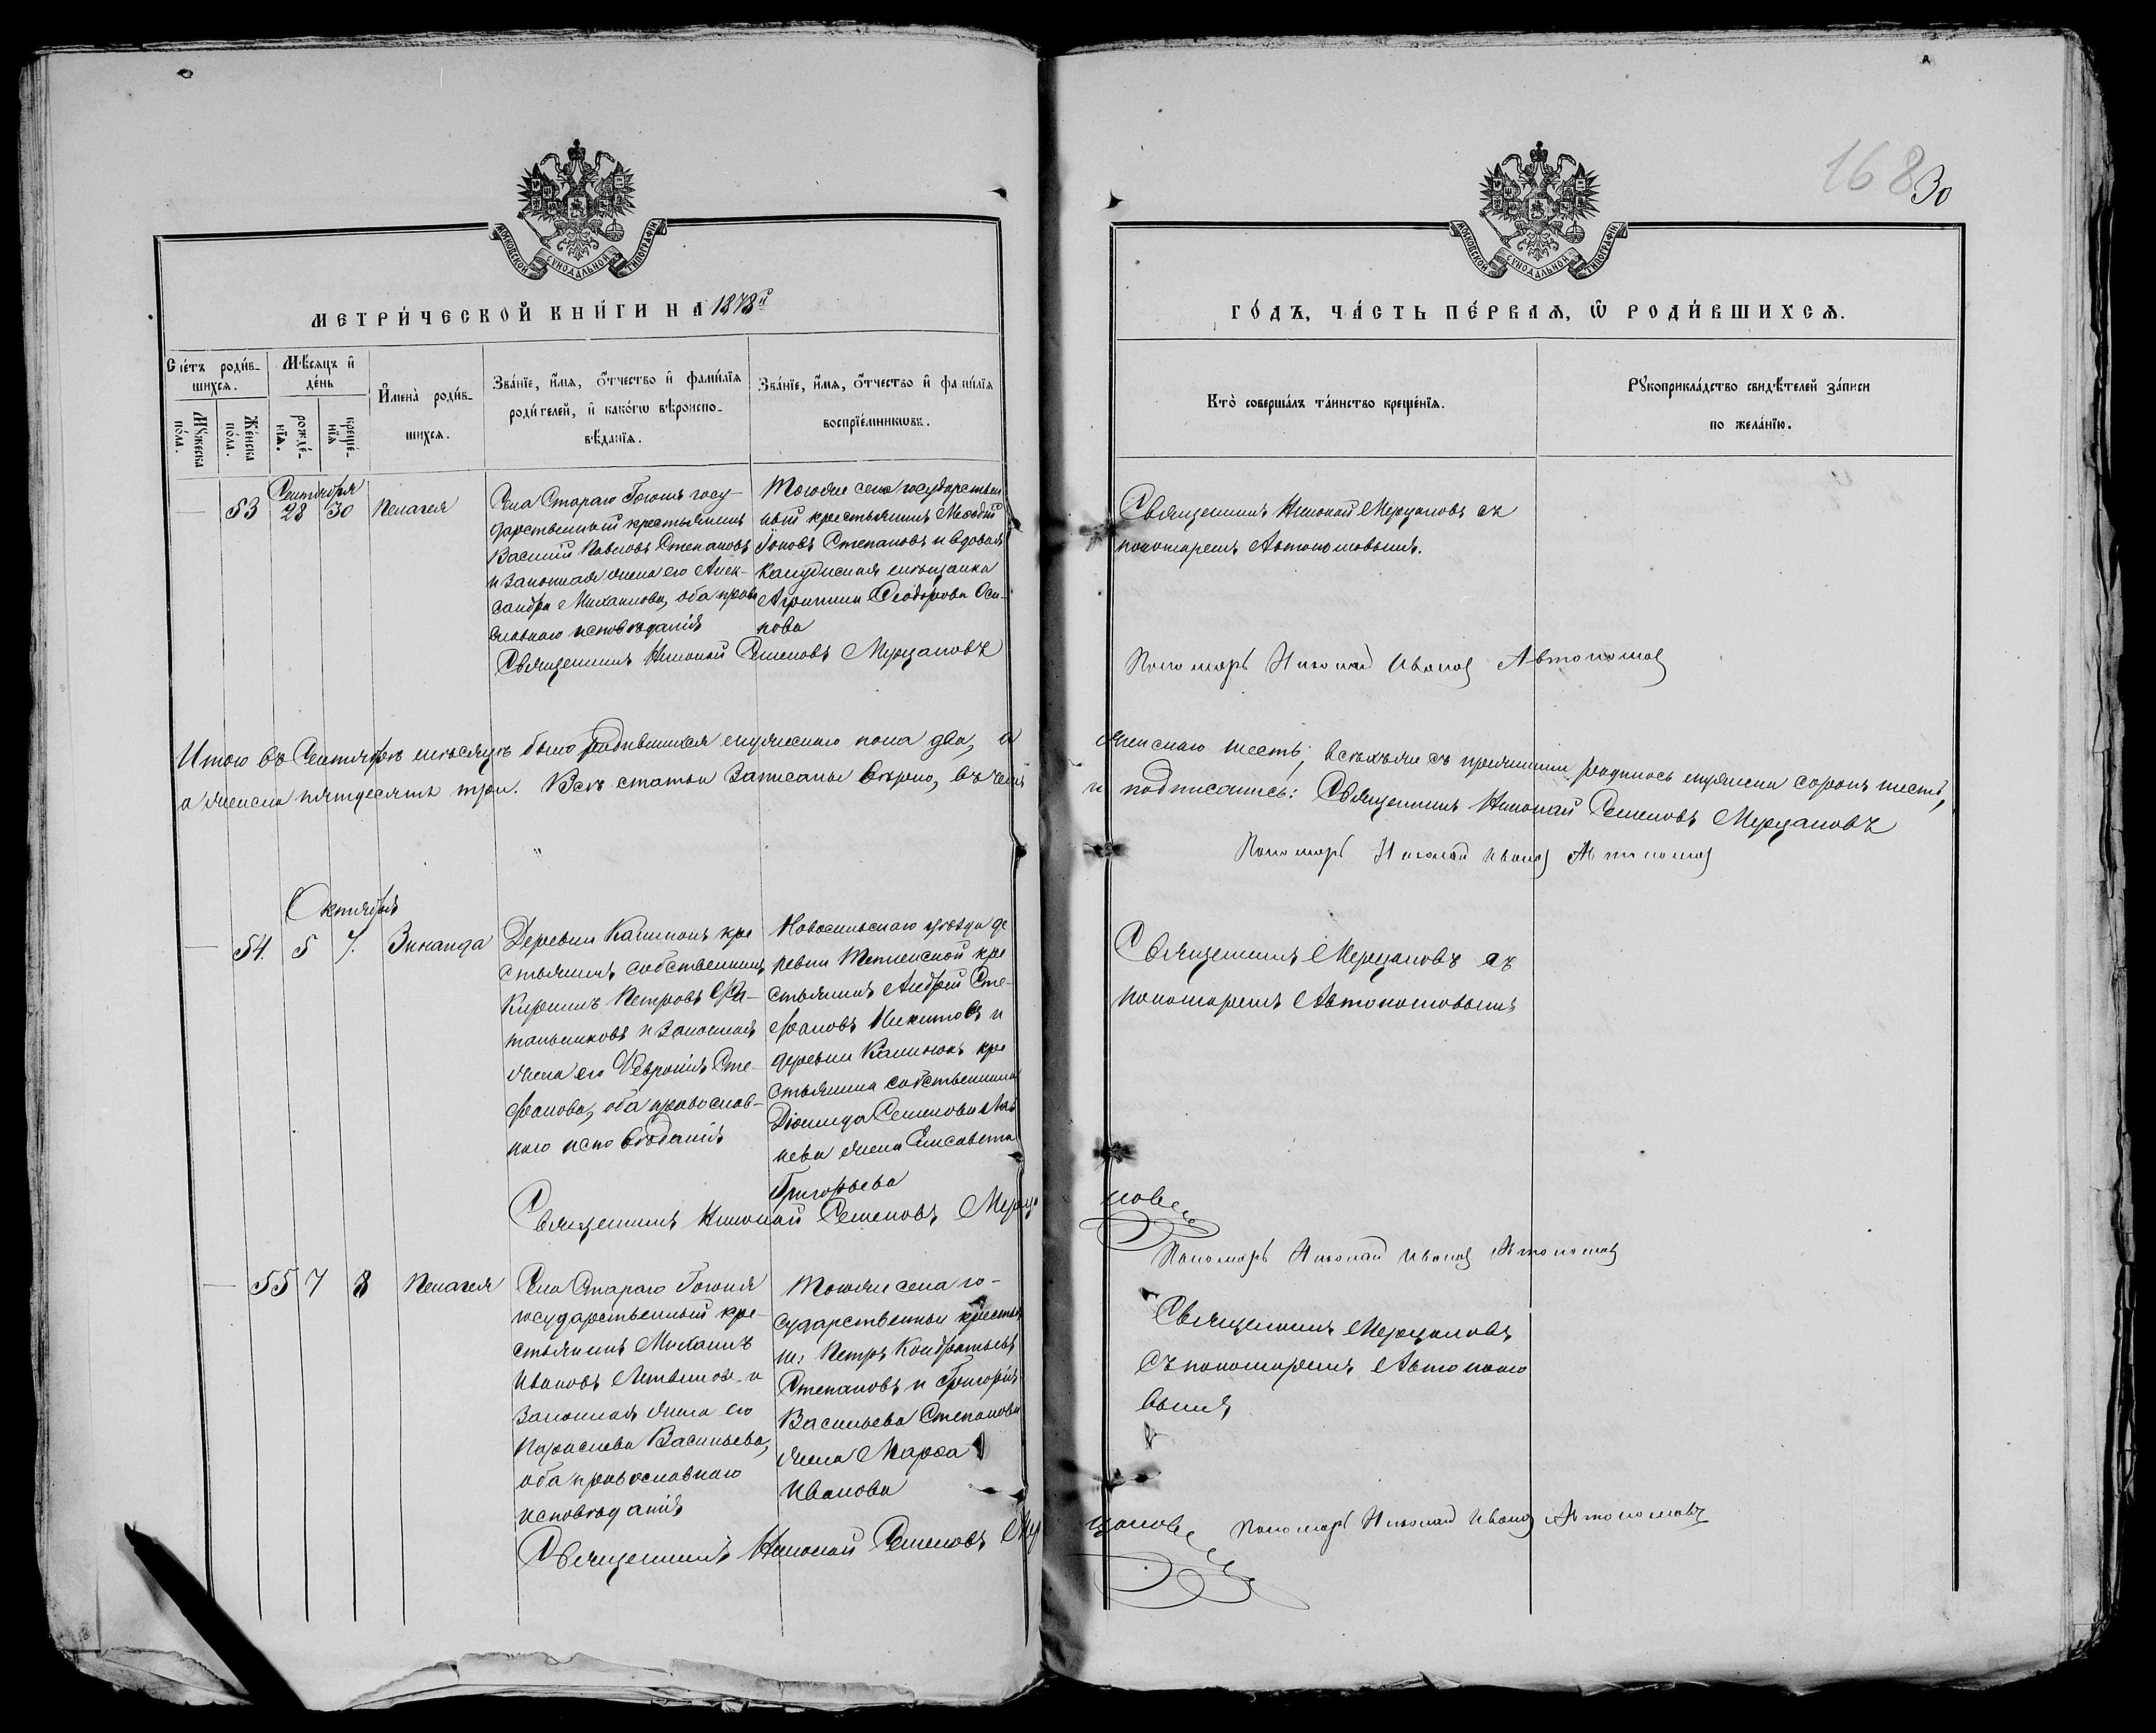 168 30
МОСКОВСКОЙ СѴНОДАЛЬНОЙ ТИПОГРАФІИ
МЕТРИ́ЧЕСКОЙ КНИ́ГИ НА 1878й
Сче́тъ роди́вшихся.
Мꙋжеска по́ла.
Же́нска по́ла.
Мѣ́сяцъ и҆ де́нь
рожде́нїя.
креще́нїя
И҆мена̀ роди́вшихся.
Зва́нїе, и҆́мя, ѻ҆́тчество и҆ фами́лїя
роди́телей, и҆ како́гѡ вѣроиспо-
вѣ́данїя.
Зва́нїе, и҆́мя, ѻ҆́тчество и҆ фами́лїя
воспрїе́мникѡвъ.
Сентября
53 28 30 Пелагея
Села Стараго Гоголя госу-
дарственный крестьянинъ
Василій Павловъ Степановъ
и законная жена его Алек-
сандра Михаилова, оба право
славнаго исповѣданія
Тогоже села государствен
ный крестьянинъ
Іоновъ Степановъ и вдовая
мѣщанка
Агрипина Ѳеодорова Оси-
пова
Священникъ Николай Семеновъ Мерцаловъ
Итого въ Сентябрѣ мѣсяцѣ было родившихся мужескаго пола два, а
а женска пятьдесятъ три. Всѣ статьи записаны вѣрно, въ чемъ
Октября
54. 5 7. Зинаида
Деревни кре
стьянинъ собственникъ
Петровъ
и законная
жена его Ѳевронія Сте-
фанова, оба православ-
наго исповѣданія
Новосильскаго уѣзда де
ревни кре
стьянинъ Андрей Сте-
фановъ Никитовъ и
деревни кре
стьянина собственника
Семенова
жена Елисавета
Григорьева
Священникъ Николай Семеновъ Мерца
55 7 8 Пелагея
Села Стараго Гоголя
государственный кре-
стьянинъ Михаилъ
Ивановъ Литвиновъ и
законная жена его
Параскева Васильева,
оба православнаго
исповѣданія
Тогоже села го-
сударственный крестья
нъ Петръ Кондратьевъ
Степановъ и Григорія
Васильева Степанова
жена Марѳа
Иванова
Священникъ Николай Семеновъ Мер
МОСКОВСКОЙ СѴНОДАЛЬНОЙ ТИПОГРАФІИ
ГО́ДЪ, ЧА́СТЬ ПЕ́РВАЯ, Ѡ РОДИ́ВШИХСЯ.
Кто̀ соверша́лъ та́инство креще́нїя.
Рꙋкоприкла́дство свидѣ́телей за́писи
по жела́нїю.
Священникъ Николай Мерцаловъ съ
пономаремъ Автономовымъ.
Пономарь Николай Ивановъ Автономовъ
женскаго шесть, всѣхъ же съ прежними родилось мужска сорокъ шесть,
и подписались: Священникъ Николай Семеновъ Мерцаловъ
Пономарь Николай Ивановъ Автономовъ
Священникъ Мерцаловъ съ
пономаремъ Автономовымъ
ловъ
Пономарь Николай Ивановъ Автономовъ
Священникъ Мерцаловъ
съ пономаремъ Автономо
вымъ
цаловъ Пономарь Николай Ивановъ Автономовъ